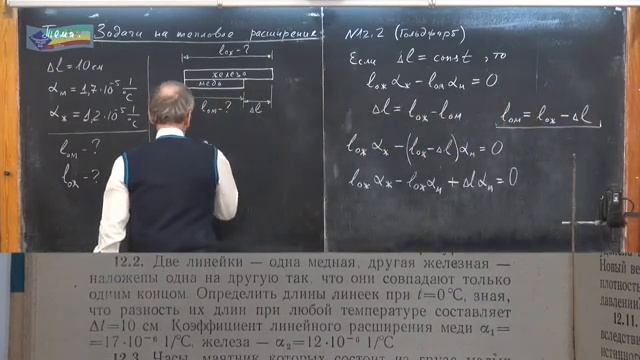 Тема: Задачи на тепловое расширение
Δl = 10 см
α_м = 1,7·10⁻⁵ 1/°C
α_ж = 1,2·10⁻⁵ 1/°C
l₀м - ?
l₀ж - ?
l₀ж - ?
железо
медь
l₀м - ?
Δl
N12.2 (Гольдфарб)
Если Δl = const, то
l₀ж α_ж - l₀м α_м = 0
Δl = l₀ж - l₀м
l₀м = l₀ж - Δl
l₀ж α_ж - (l₀ж - Δl) α_м = 0
l₀ж α_ж - l₀ж α_м + Δl α_м = 0
12.2. Две линейки — одна медная, другая железная —
наложены одна на другую так, что они совпадают только
одним концом. Определить длины линеек при t=0 °C, зная,
что разность их длин при любой температуре составляет
Δl=10 см. Коэффициент линейного расширения меди α₁=
=17·10⁻⁶ 1/°C, железа — α₂=12·10⁻⁶ 1/°C
12.3. Часы, маятник которых состоит из
Новый
плотность
давлении
12.11.
вследств